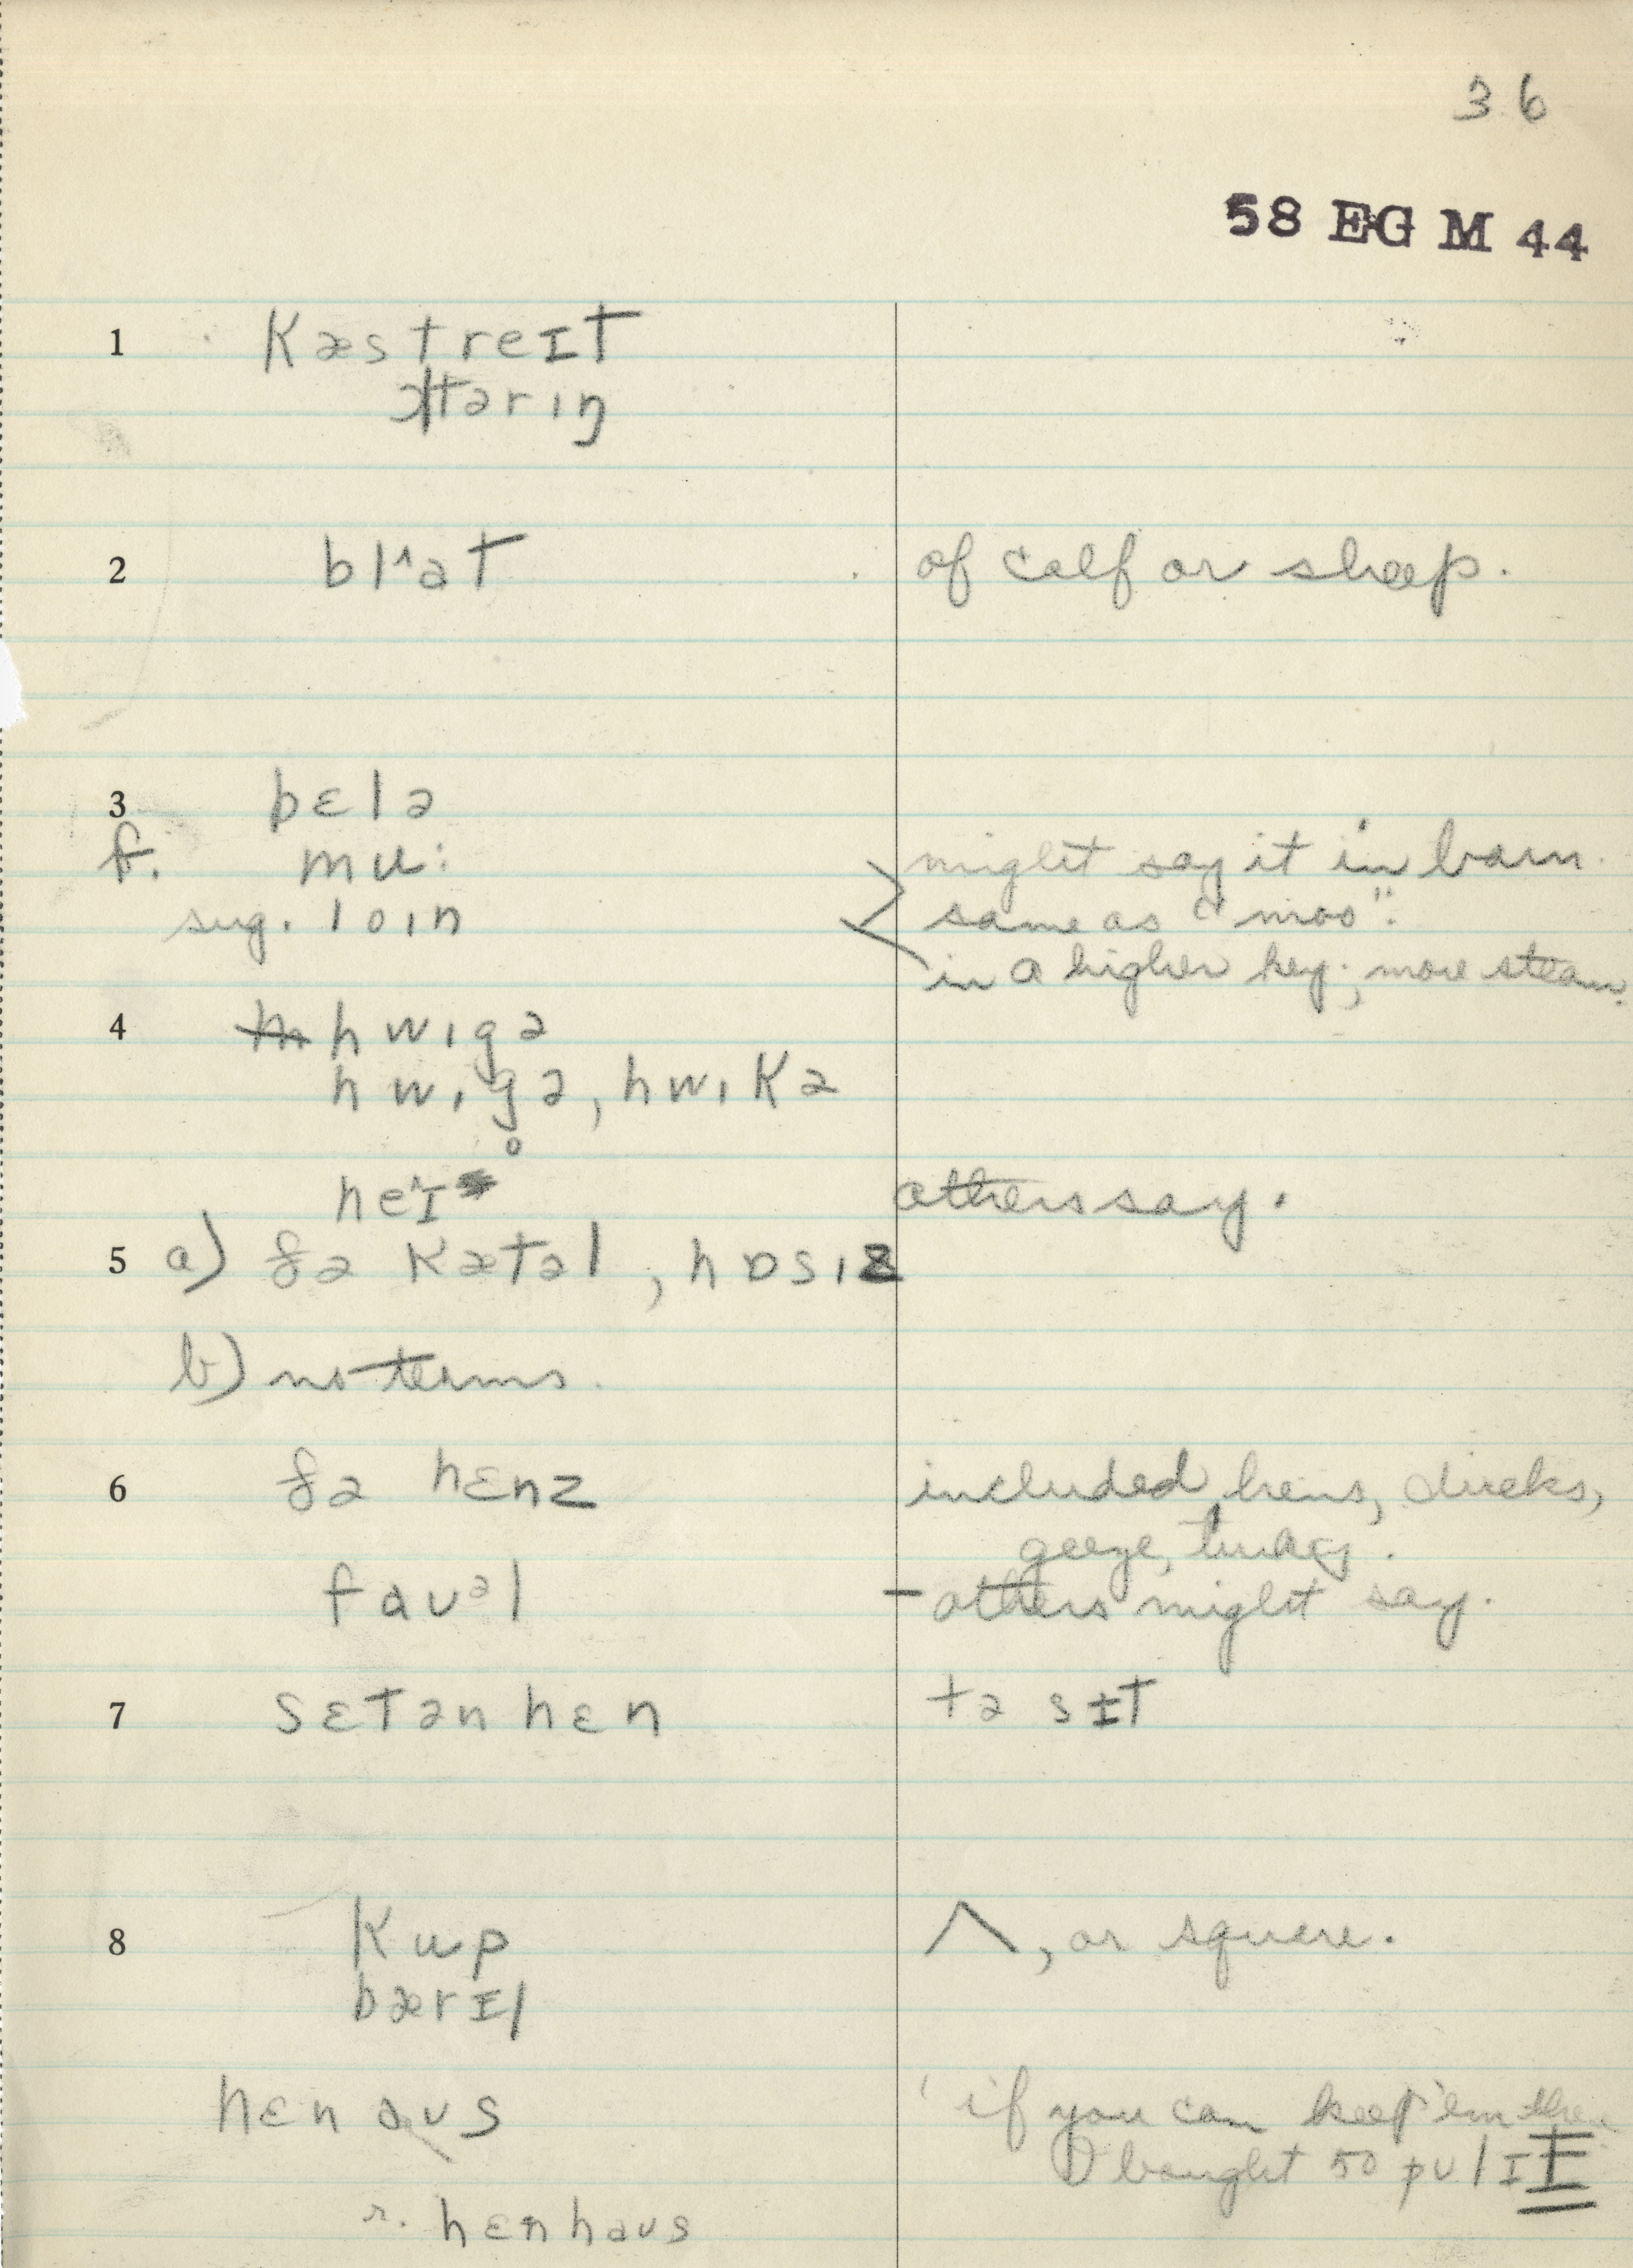 36
58 EG M 44
1 kæstreɪt
ɔltərɩŋ
2 bl^at of calf or sheep.
3 bɛlə
f. mu: might say it in barn.
sug. loɩn same as "moo".
in a higher key; more steam.
4 hwɩgə
hwɩg̥ə, hwɩkə
he^ɪ others say.
5 a) ðə kætəl, hɒsɩz
b) no terms.
6 ðə hɛnz included hens, ducks,
geese, turkey.
faʊᵊl – others might say.
7 sɛtən hɛn tə sɪt
8 kup ʌ, or square.
bærɪl
hɛn aʊs 'if you can keep 'em there
I bought 50 pʊlɪt
r. hɛnhaʊs